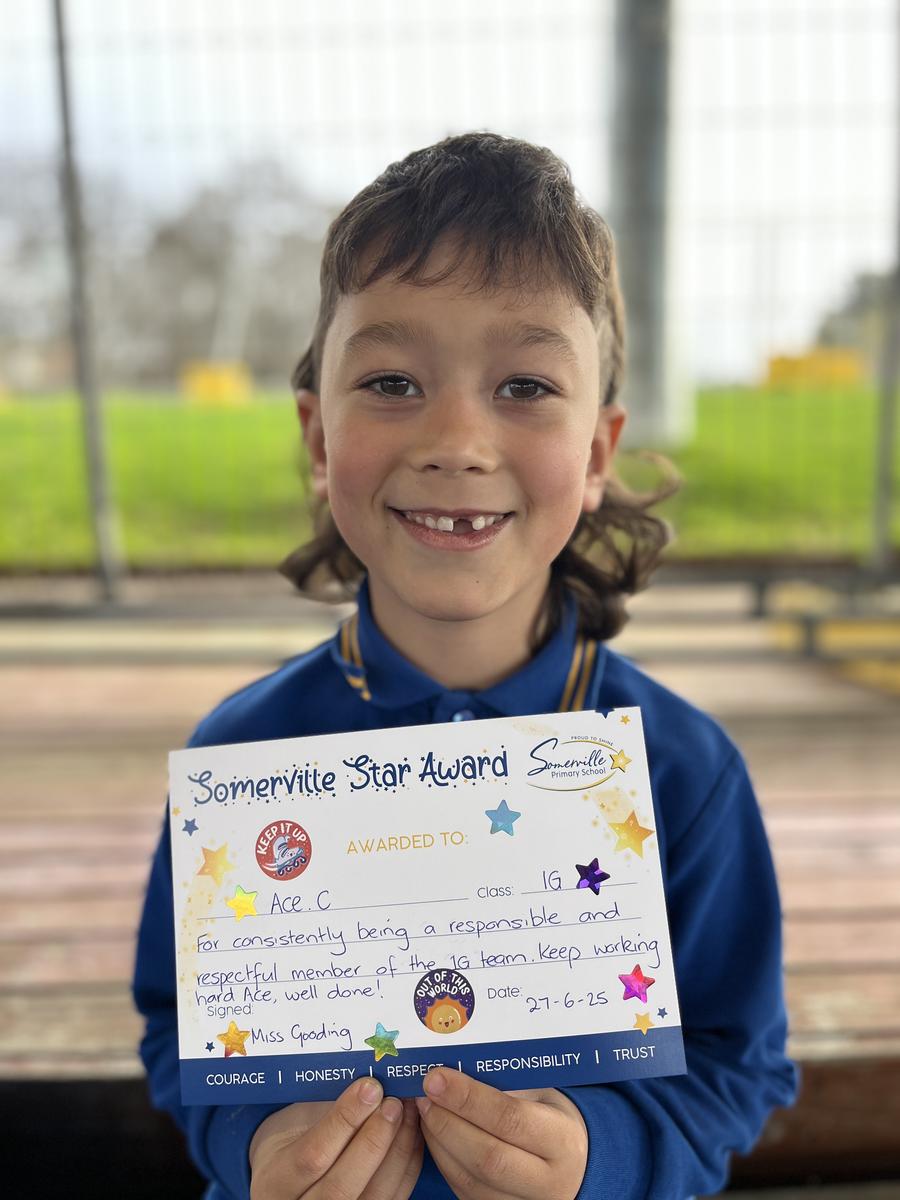 Somerville Star Award
PROUD TO SHINE
Somerville
Primary School
KEEP IT UP
AWARDED TO:
Ace. C Class: 1G
For consistently being a responsible and
respectful member of the 1G team. keep working
hard Ace, well done!
OUT OF THIS WORLD
Signed: Miss Gooding
Date: 27-6-25
COURAGE | HONESTY | RESPECT | RESPONSIBILITY | TRUST